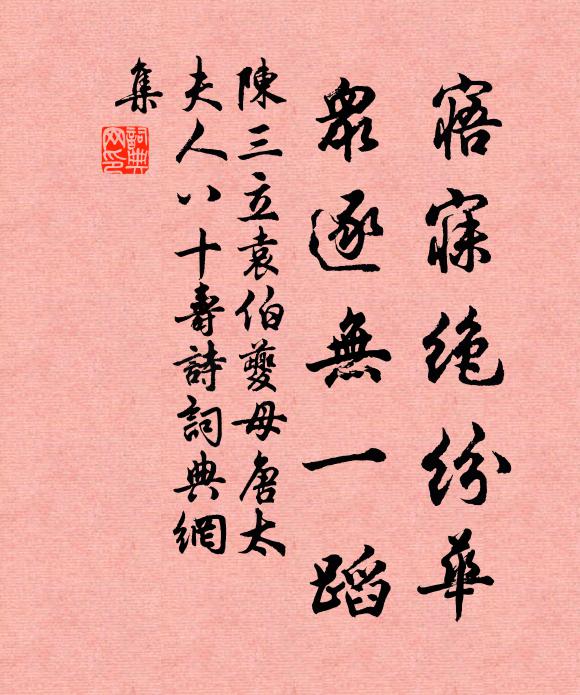 寤寐絶紛華
衆逐無一蹈
陳三立袁伯夔母唐太
夫人八十壽詩詞典網
集
詞典网印